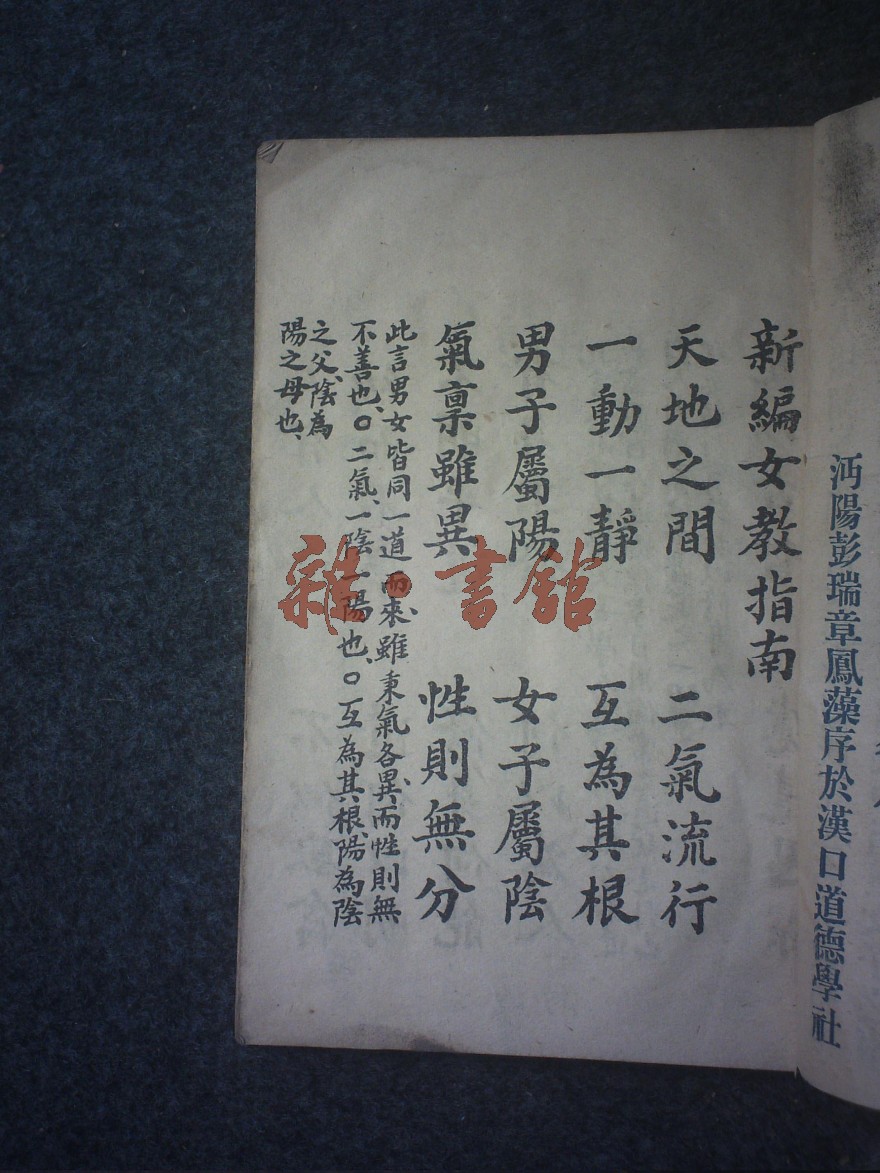 沔陽彭瑞章鳳藻序於漢口道德學社
新編女教指南
天地之間 二氣流行
一動一靜 互為其根
男子屬陽 女子屬陰
氣稟雖異 性則無分
此言男女皆同一道而來、雖秉氣各異、而性則無
不善也、〇二氣、一陰一陽也、〇互為其根、陽為陰
之父、陰為
陽之母也、
雜·書館